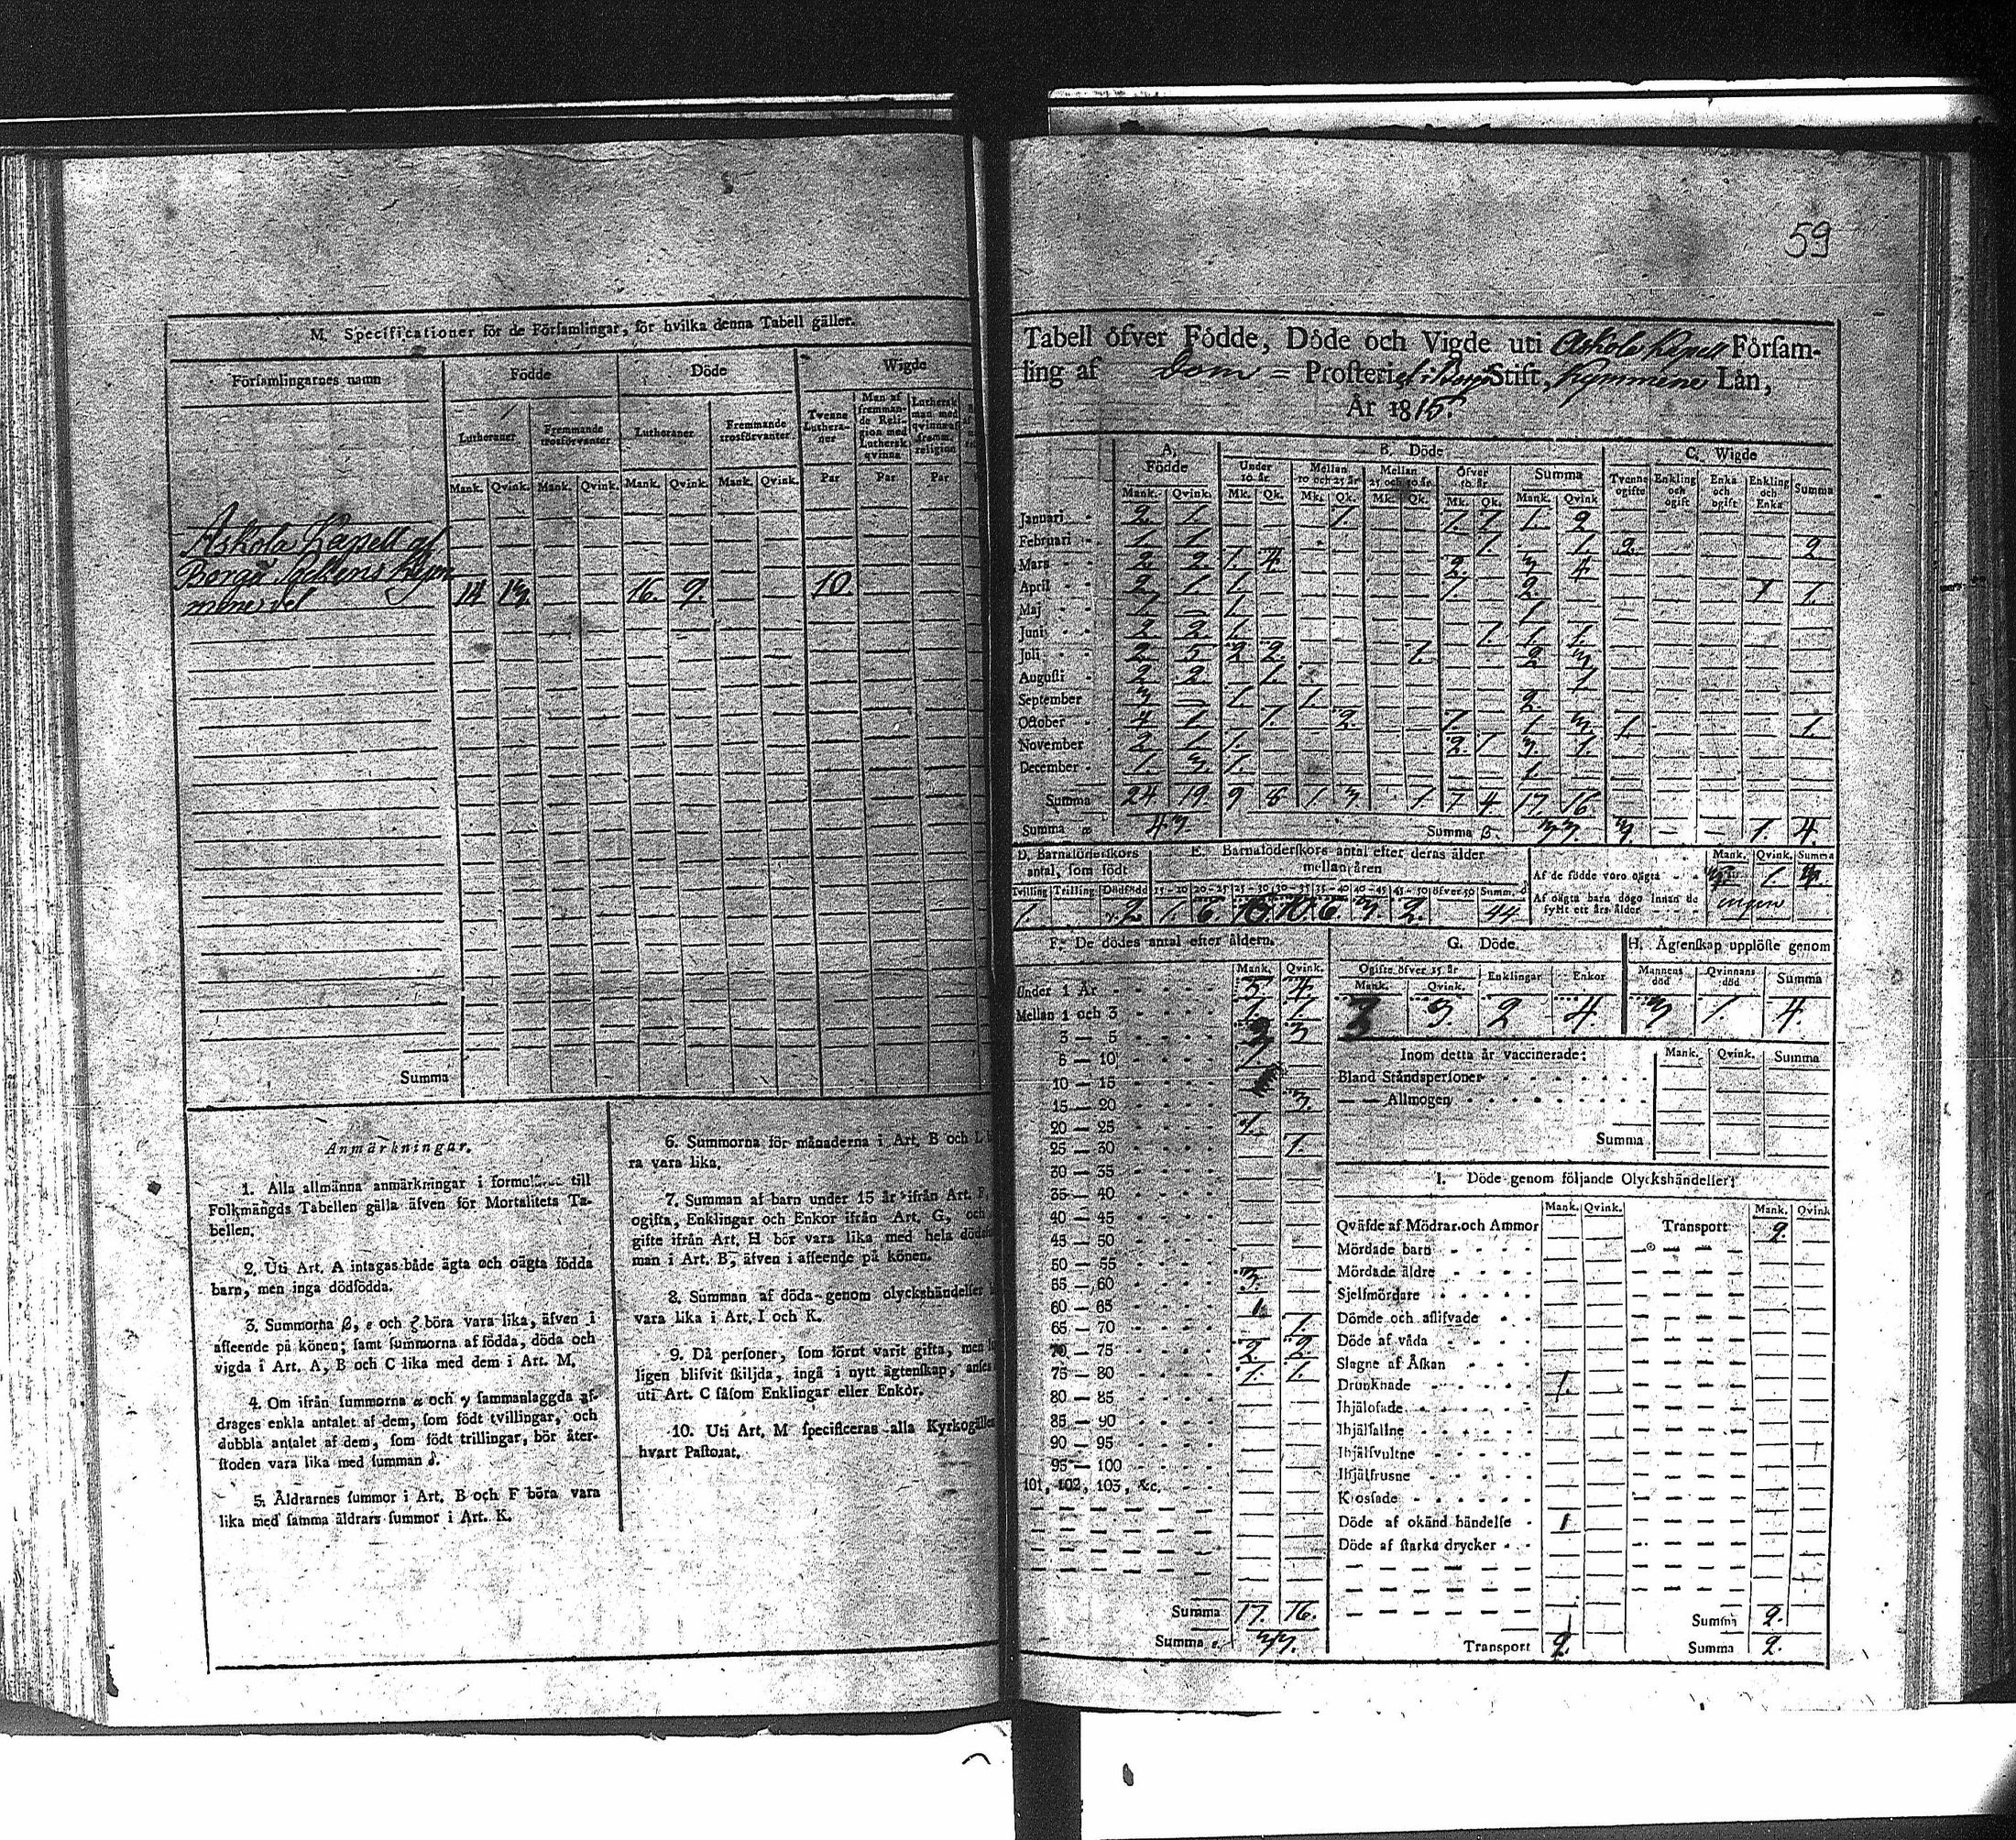 M. Specificationer för de Församlingar, för hvilka denna Tabell gäller.
Församlingarnes namn
Födde
Döde
Wigde
Lutheraner
Fremmande trosförvanter
Lutheraner
Fremmande trosförvanter
Tvenne Lutheraner
Man af fremmande Religion med Luthersk qvinna
Luthersk man med qvinna af framm. religion
Mank. Qvink. Mank. Qvink. Mank. Qvink. Mank. Qvink. Par Par Par
Askola Kapell af
Borgå Sockens Kym
mene del 14 13. 16. 9. 10.
Summa
Anmärkningar.
1. Alla allmänna anmärkningar i formuläret till
Folkmängds Tabellen gälla äfven för Mortalitets Ta-
bellen.
2. Uti Art. A intagas både ägta och oägta födda
barn, men inga dödfödda.
3. Summorna β, ε och ζ böra vara lika, äfven i
afseende på könen; samt summorna af födda, döda och
vigda i Art. A, B och C lika med dem i Art. M.
4. Om ifrån summorna α och γ sammanlaggda af-
drages enkla antalet af dem, som födt tvillingar, och
dubbla antalet af dem, som födt trillingar, bör åter-
stoden vara lika med summan δ.
5. Åldrarnes summor i Art. B och F böra vara
lika med samma åldrars summor i Art. K.
6. Summorna för månaderna i Art. B och L
ra vara lika.
7. Summan af barn under 15 år ifrån Art. F,
ogifta, Enklingar och Enkor ifrån Art. G, och
gifte ifrån Art. H bör vara lika med hela döda
man i Art. B, äfven i afseende på könen.
8. Summan af döda genom olyckshändelser
vara lika i Art. I och K.
9. Då personer, som förut varit gifta, men
ligen blifvit skiljda, ingå i nytt ägtenskap, anses
uti Art. C såsom Enklingar eller Enkor.
10. Uti Art. M specificeras alla Kyrkogälle
hvart Pastorat.
59
Tabell öfver Födde, Döde och Vigde uti Askola Kapell Församling
ling af Dom = Prosteri i Borgå Stift, Kymmene Län,
År 1815.
A. Födde
B. Döde
C. Wigde
Under 10 år. Mellan 10 och 25 år. Mellan 25 och 50 år. Öfver 50 år. Summa
Tvenne ogifte Enkling och ogift Enka och ogift Enkling och Enka Summa
Mank. Qvink. Mk. Qk. Mk. Qk. Mk. Qk. Mk. Qk. Mank. Qvink
Januari 2. 1. 1. 1. 1. 1. 2
Februari 1. 1 1. 1. 2. 2
Mars 2 2. 1. 4. 2. 3. 4
April 2. 1. 1. 1. 2. 1 1.
Maj 1. 1. 1.
Juni 2 2. 1. 1. 1. 1.
Juli 2. 5 2 2. 1. 2. 3.
Augusti 2. 2. 1. 1
September 3. 1. 1. 2.
October 4 1. 1. 2. 1. 3. 1. 1.
November 2. 1 1. 2 1 3. 1.
December 1. 3. 1. 1.
Summa 24 19. 9 8 1. 3. 1. 7 4. 17 16.
Summa α 43.
Summa β 33. 3. 1. 4.
D. Barnaföderskors antal, som födt
Tvilling Trilling Dödfödd
1. 2
E. Barnaföderskors antal efter deras ålder mellan åren
15-20 20-25 25-30 30-35 35-40 40-45 45-50 öfver 50 Summ. δ
1. 6 10 6 3. 2. 44
Mank. Qvink. Summa
Af de födde voro oägta 1.
Af oägta barn dogo innan de
fyllt ett års ålder ingen
F. De dödes antal efter åldern.
Mank. Qvink.
Under 1 År 5 4.
Mellan 1 och 3 1. 1.
3 — 5 3
5 — 10 1.
10 — 15
15 — 20 3.
20 — 25 1.
25 — 30 1.
30 — 35
35 — 40
40 — 45
45 — 50
50 — 55
55 — 60 3.
60 — 65 1.
65 — 70 1.
70 — 75 2. 2.
75 — 80 1. 1.
80 — 85
85 — 90
90 — 95
95 — 100
101, 102, 103, &c.
Summa 17. 16.
Summa ε. 33.
G. Döde
Ogifte öfver 15 år Enklingar Enkor
Mank. Qvink.
3 3. 2 4.
H. Ägtenskap upplöste genom
Mannens död Qvinnans död Summa
3 1. 4.
Inom detta år vaccinerade: Mank. Qvink. Summa
Bland Ståndspersoner
—— Allmogen
Summa
I. Döde genom följande Olyckshändelser:
Mank. Qvink. Mank. Qvink
Qväfde af Mödrar och Ammor Transport 2.
Mördade barn
Mördade äldre
Sjelfmördare
Dömde och aflifvade
Döde af våda
Slagne af Åskan
Drunknade 1.
Ihjälofade
Ihjälfallne
Ihjälsvultne
Ihjälfrusne
Krossade
Döde af okänd händelse 1
Döde af starka drycker
Summa 2.
Transport 2. Summa 2.